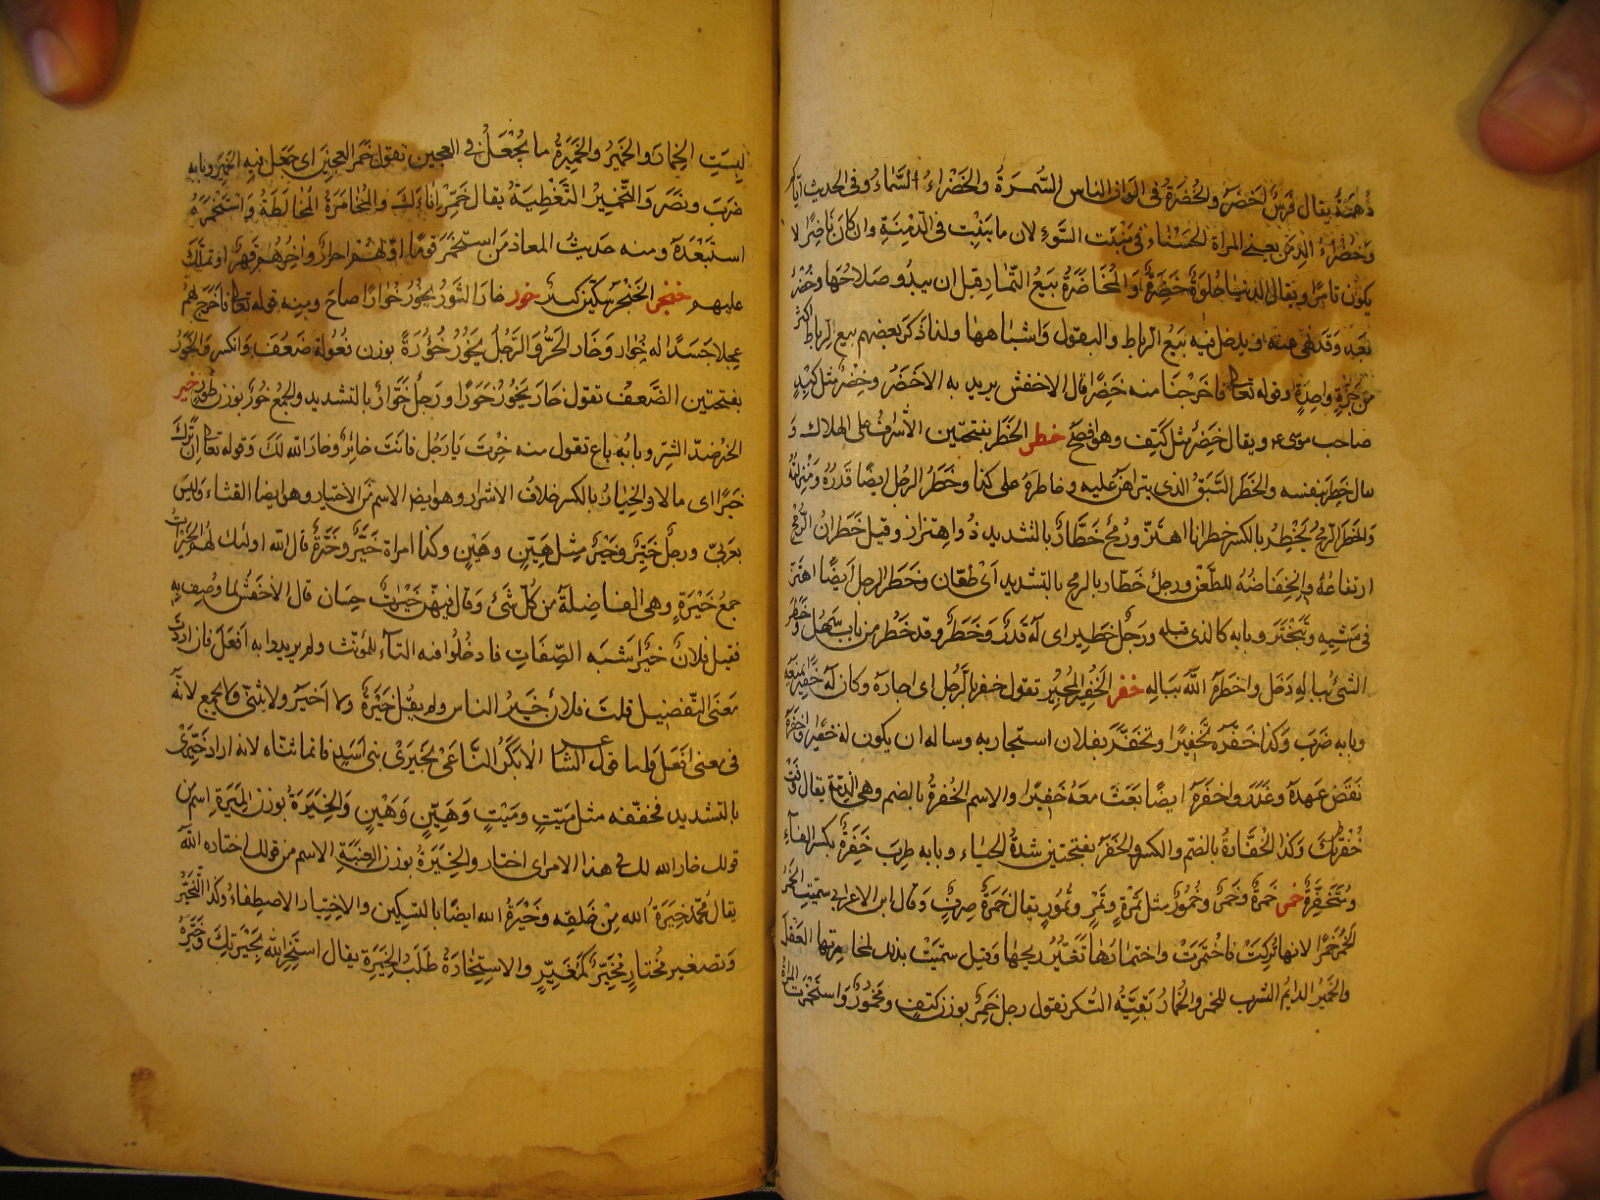 دُهْمَةٌ يقال فَرَسٌ اَخضَرُ والخُضْرَةُ فى الوان الناس السُّمرَةُ والخَضْرَاءُ السَّمَاءُ وفى الحديث اياكم
وخَضْرَاءَ الدِمَنِ يعنى المراة الحَسْنَاءَ فى مَنْبَتِ السَّوْءِ لان ما ينبت فى الدِّمْنَةِ وان كان ناضِرًا لا
يكون ثامرًا ويقال الدنيا حُلوَةٌ خَضِرَةٌ وَالمُخَاضَرَةُ بَيعُ الثِّمَار قبل ان يبدُو صلاحُهَا وهى خُضْرٌ
بَعْد وَقَد نُهِىَ عنه ويدخل فيه بَيْعُ الرِطاب والبقول وَاشباهها ولذا كَرِهَ بعضهم بيع الرِطاب اكثر
من جَزَّةٍ واحِدَةٍ وقوله تعالى فاخرجْنَا منه خَضِرًا قال الاخفش يريد به الاخضَرَ وخِضْرٌ مثل كِبْدٍ
صاحب موسى ع م ويقال خَضِرٌ مثل كَتِف وهو افصَحُ خطر الخَطَر بفتحتين الأشرَاف على الهلاك وَ
يقال خاطر بنفسه والخَطَر السَبَقُ الذى يتراهن عليه وخاطرَهُ على كذا وخَطَرُ الرجل ايضًا قَدْرُهُ ومَنْزِلَتُهُ
وَالخَطَر الرُّمحُ يَخْطِرُ بالكسر خطرانا اهتزّ ورُمحٌ خَطَّارٌ بالتشديد ذُو اهتزاز وقيل خَطَرَانُ الرُّمحِ
ارتفاعُهُ وانخِفَاضُهُ للطَّعْنِ ورجلٌ خَطّار بالرمح بالتشديد اَىْ طعّان وخَطَر الرجل اَيضًا اهتَزّ
فى مَشْيِهِ وتَبَخْتَرَ وبابه كالذى قبله ورَجُلٌ خَطِير اى له قَدْرٌ وَخَطَرٌ وقد خَطُر من باب سَهُلَ وخَطَرَ
الشئُ ببالِهِ دَخَلَ واخطَرَهُ اللّٰه بِبَالِهِ خفر الخَفِيرُ المُجِيرُ تقول خفر بالرَّجُل اى اجارَه وكان له خَفِيرًا يَمْنَعُهُ
وبابه ضَرَبَ وَكَذا خَفَّرَه تَخْفِيرًا وتخَفَّرَ بفلان استجار به وساله ان يكون له خَفيرًا واخفَرَهُ
نَقَضَ عهدَهُ وغَدَرَ واخفَرَهُ ايضًا بَعَثَ مَعَهُ خَفِيرًا والاسم الخُفْرَةُ بالضم وهى الذِمّة يقال وَفَتْ
خُفْرَتُكَ وَكذا الخُفَارَةُ بالضم والكسر والخَفَرُ بفتحتين شدةُ الحَيَاء وبابه طَرِبَ خَفِرَةٌ بكسر الفاءِ
ومُتَخَفِّرَةٌ خمر خَمْرَةٌ وخَمْرٌ وخُمُورٌ مثل تَمْرَةٍ وتَمْرٍ وتُمُورٍ يقال خَمْرَةٌ صِرفٌ وقال ابن الاعرابى سُمِّيَتِ الخَمْرُ
خَمْرًا لانها تُرِكَتْ فَاخْتَمَرَتْ واختمَارُهَا تَغَيُّرُ رِيحِهَا وَقيل سمّيَتْ بذلك لمخامَرتِها العَقْلَ
والخِمّيرُ الدايم الشرب للخمر والخُمارُ بَقيَّةُ السُكر تقول رجل خَمِرٌ بوزن كَتِفٍ ومَخْمُورٌ وَاستَخْمَرَتِ المراة
لبِسَتِ الخِمَارَ والخَمِيرُ والخَمِيرَةُ ما يُجْعَلُ فى العجين تقول خَمَر العجِينَ اى جَعَلَ فيه الخَمِيرَ وبابه
ضرَبَ وَنَصَرَ وَالتَّخْمِيرُ التَغْطِيَةُ يقال خَمِّرْ اِنَاءَكَ وَالمُخَامَرَةُ المُخَالَطَةُ وَاستَخْمَرَهُ
استَعْبَدَهُ ومنه حَديثُ المعاذ مَن استخمَرَ قومًا اوَّلهُمْ احرارٌ اى اخذَهُم قَهْرًا وتملّك
عليهم خنجر الخَنْجَر سِكّين كبيرٌ خور خارَ الثَورُ يَخُورُ خُوَارًا صاحَ ومنه قوله تعالى فاَخْرَجَ لَهُمْ
عِجلا جَسَدًا له خُوار وخار الحَرُّ والرَّجُلُ يَخُورُ خُؤُرَةً بوزن فُعُولة ضَعُفَ وانكسر وَالخَوَرُ
بفتحتين الضَّعف تقول خارَ يَخُورُ خَوَرًا ورَجلٌ خَوَّارٌ بالتشديد والجمع خُورٌ بوزن طُورٍ خير
الخيرُ ضدُّ الشرِّ وبابُهُ باع تقول منه خِرْتَ يَا رَجُل فانتَ خائِرٌ وخارَ الله لَكَ وَقوله تعالى اِن تَرَكَ
خيرًا اى مالا والخِيَارُ بالكسر خلافُ الاشرار وهو ايضا الاسم مَن الاختيار وهو ايضا القثاء وَليس
بعَرَبىّ ورجلٌ خَيّرٌ وخَيْرٌ مثل هَيّنٍ وهَيْنٍ وكذا امراة خَيّرَةٌ وخَيْرَةٌ قال الله اولئك لهُم الخَيْرَاتُ
جمعُ خَيْرَةٍ وهى الفاضِلةُ من كلّ شئ وَقال فيهنّ خَيْراتٌ حِسَان قال الاخفَش لما وُصِفَ بِهِ
فقيل فلانٌ خيرٌ اشبه الصِّفَاتِ فادخَلُوا فيه التاء للمؤنث ولم يريدوا به اَفعَلَ فان اردتَ
مَعنَى التّفضيل قلتَ فلان خَيرُ الناس ولم يقُل خَيْرَةٌ ولا اَخيَرُ ولا يثنّى ولا يُجمع لانّهُ
فى معنى افعَلَ وَاما قول الشاعر الا بَكَرَ النَّاعِى بخَيرَىْ بنى اسَدٍ فانما ثنّاه لانه اراد خَيّرَىْ
بالتشديد فخففه مثل مَيّتٍ ومَيْتٍ وَهَيّنٍ وَهَيْنٍ وَالخِيرَةُ بوزن المِيرَةِ اسم من
قولك خار الله لك فى هذا الامر اى اختار والخِيَرَةُ بوزن العِنَبَةِ الاسم من قولك اختاره الله
يقال محمّد خِيَرَةُ الله مِنْ خلقِهِ وخِيْرَةُ الله ايضًا بالتسكين والاختيار الاصطِفَاءُ وكذا التَّخَيُّر
وَتصغير مُختَارٍ مُخَيّرٌ كَمُغَيِّرٍ والاستِخَارَةُ طَلَبُ الخِيَرَةِ يقال استَخِرِ اللّٰه يَخِرْ لَكَ وخَيَّرَهُ